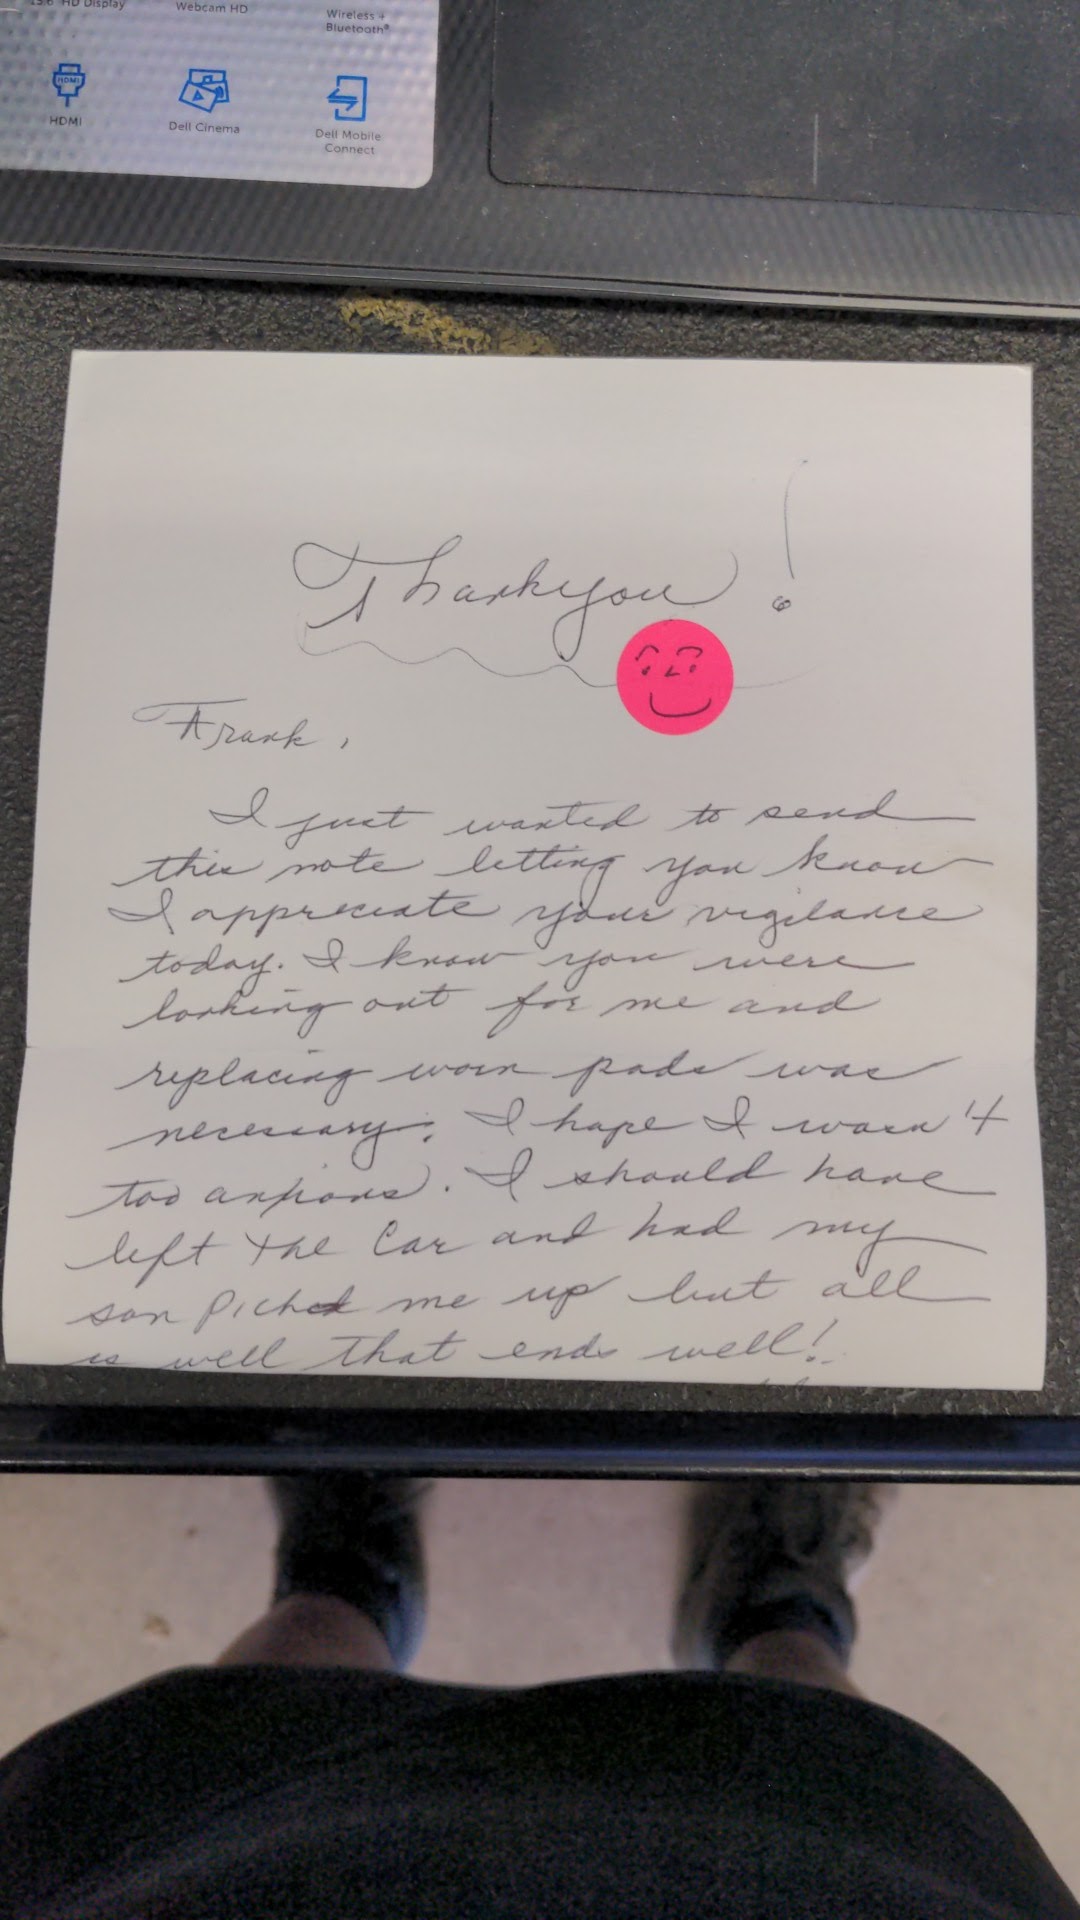 15.6" HD Display Webcam HD Wireless +
Bluetooth®
HDMI
HDMI Dell Cinema Dell Mobile
Connect
Thankyou!
Frank,
I just wanted to send
this note letting you know
I appreciate your vigilance
today. I know you were
looking out for me and
replacing worn pads was
necessary. I hope I wasn't
too anxious. I should have
left the Car and had my
son Picked me up but all
is well that ends well!